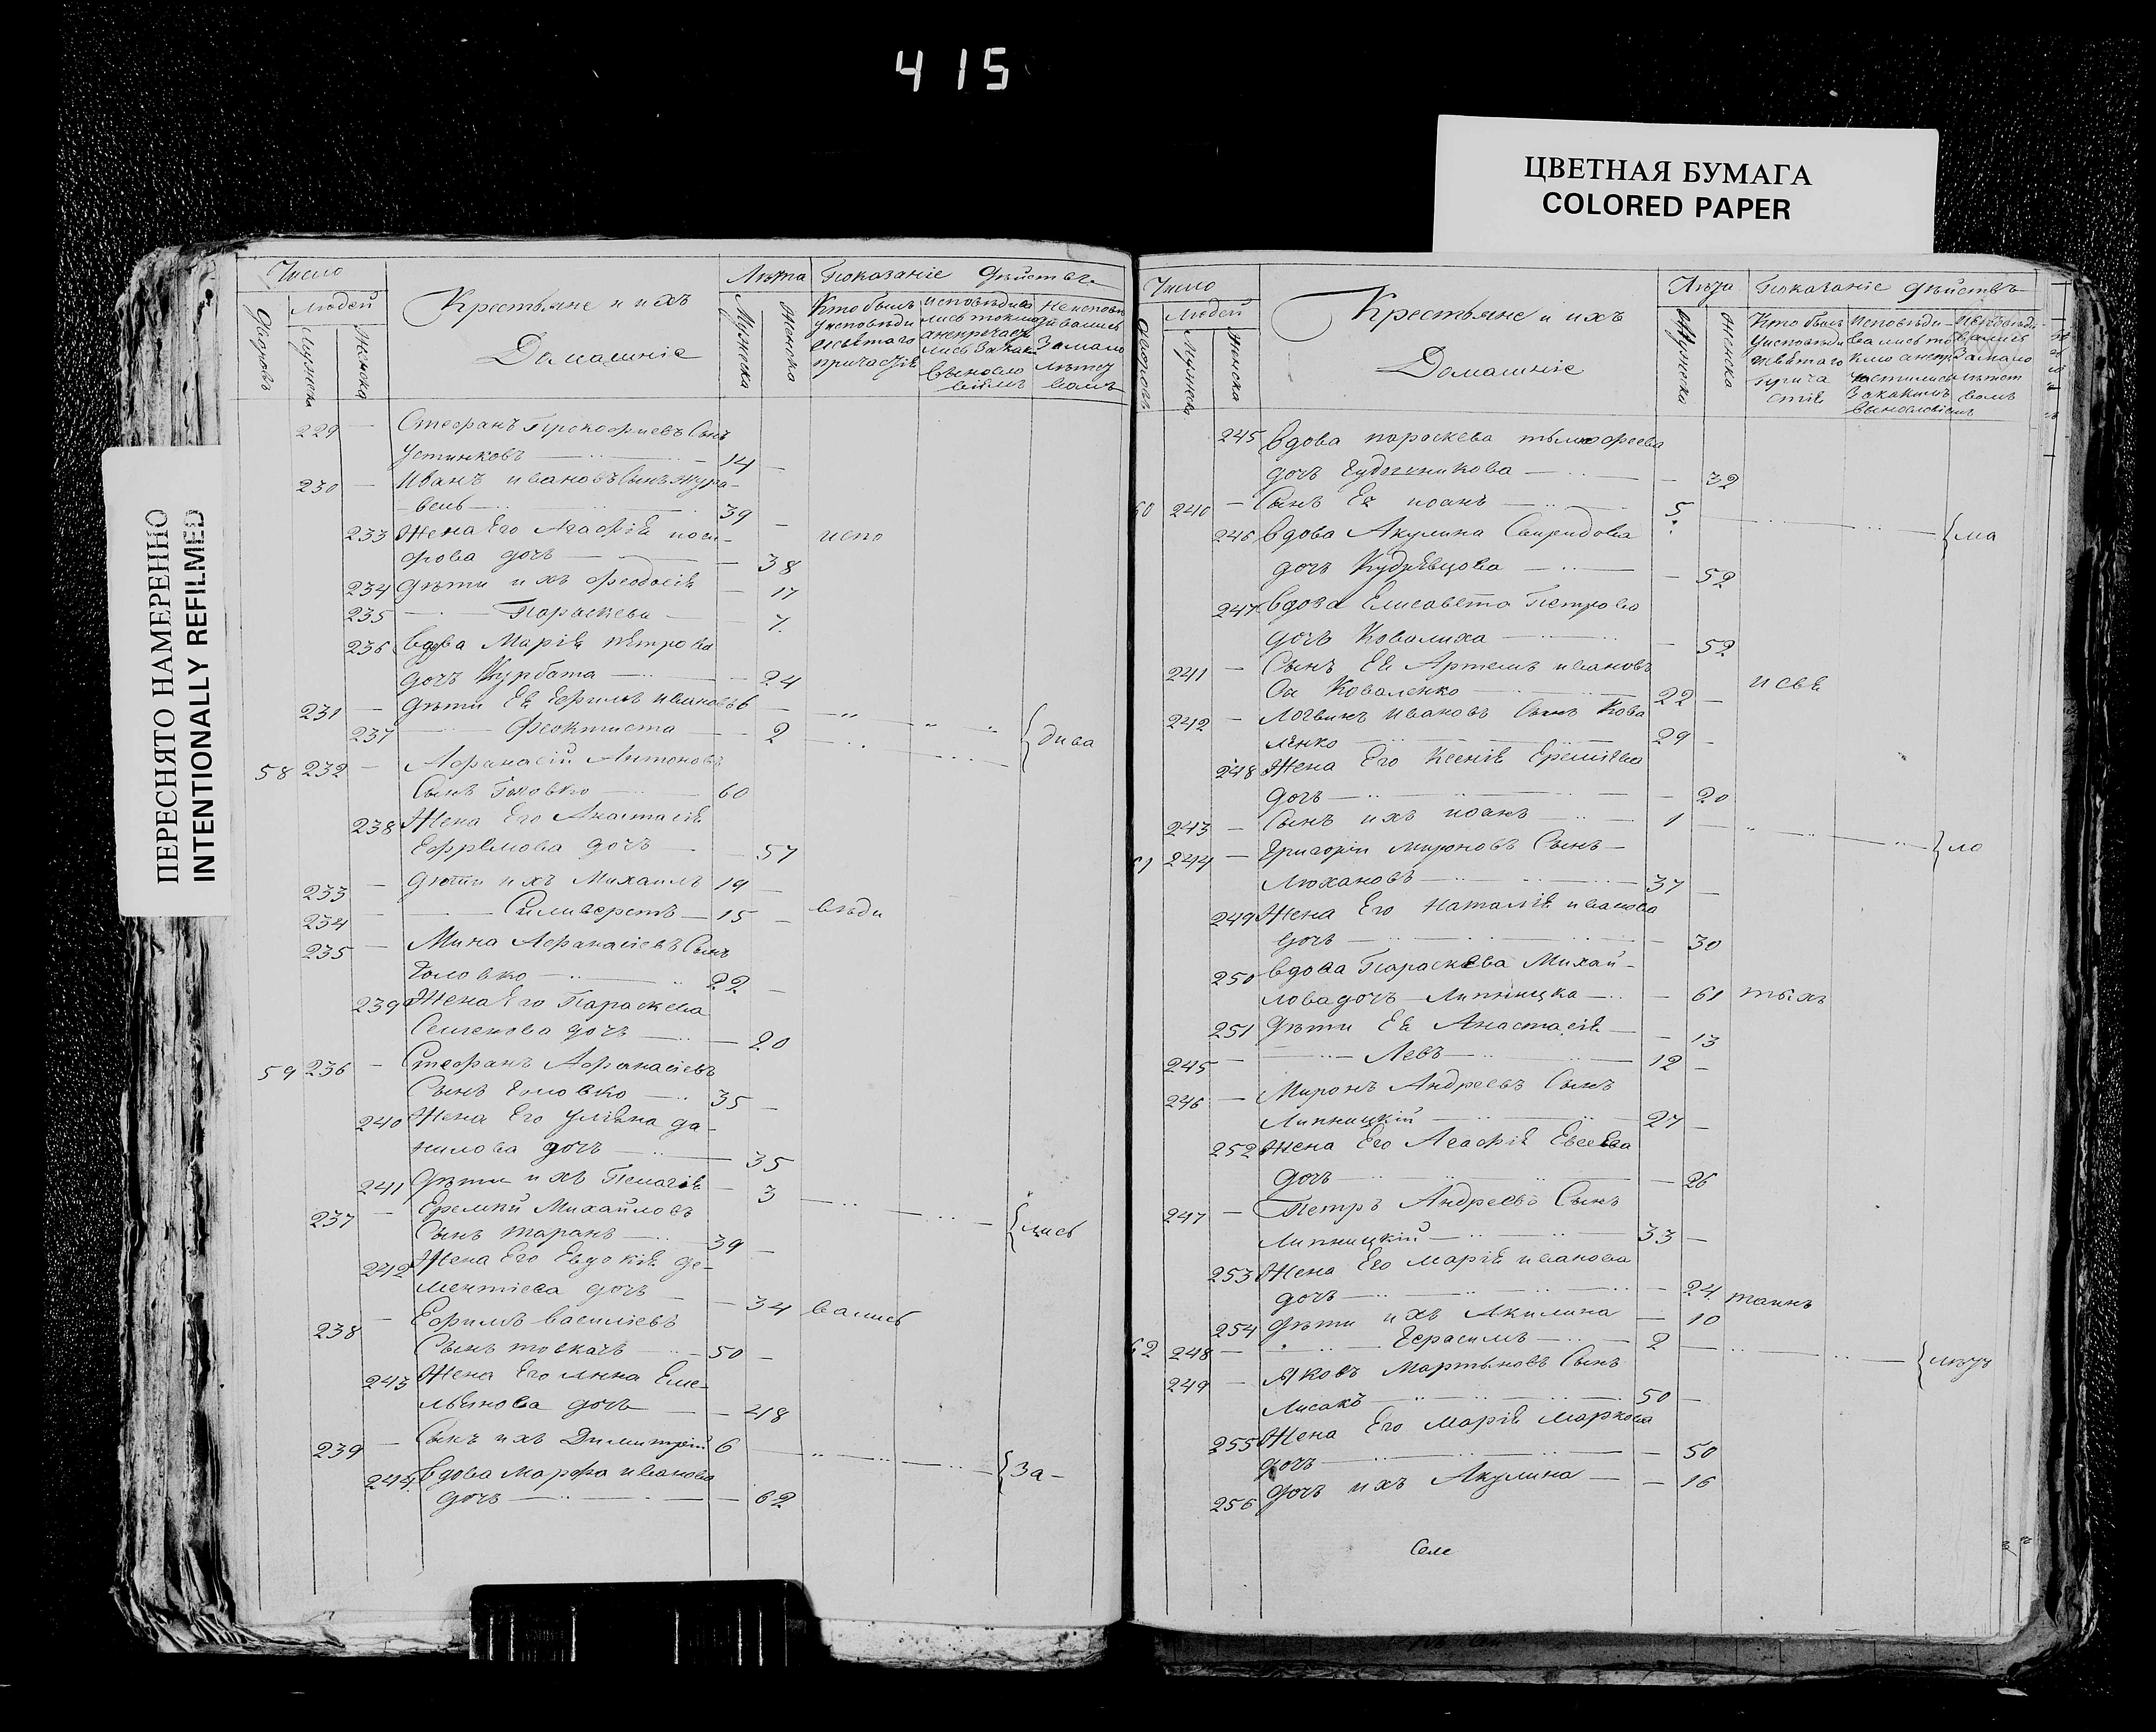 415
ЦВЕТНАЯ БУМАГА
COLORED PAPER
ПЕРЕСНЯТО НАМЕРЕННО
INTENTIONALLY REFILMED
Число
Дворовъ
Людей
Мужеска
Женска
Крестьяне и ихъ
Домашніе
Лѣта
Мужеска
Женска
Показаніе дѣйствъ
Кто былъ
у исповѣди
и святаго
причастія
229 — Стефанъ Прокофиевъ Сынъ
Устинковъ — 14 —
230 — Иванъ ивановъ Сынъ жура-
вель — 39 —
233 Жена Его Агафія иоси- испо
фова дочь — 38
234 Дѣти ихъ Феодосія — 17
235 — Параскева — 7.
236 вдова Марія петрова
дочь Курбата — 24
231 — дѣти Ея Ефимъ ивановъ 6 —
237 — Феоктиста — 2 { дива
58 232 — Афанасій Антоновъ
Сынъ Головко — 60
238 Жена Его Анастасія
Ефремова дочь — 57
233 — Дѣти ихъ Михаилъ 19 —
234 — Силиверстъ — 15 — вѣди
235 — Мина Афанасіевъ Сынъ
Головко — 22 —
239 Жена Его Параскева
Семенова дочь — 20
59 236 — Стефанъ Афанасіевъ
Сынъ Головко — 35 —
240 Жена Его Уліяна да-
нилова дочь — 35
241 Дѣти ихъ Пелагія — 3
237 — Еремѣй Михайловъ { лись
Сынъ таранъ — 39 —
242 Жена Его Евдокія де-
ментіева дочь — 34 вались
238 — Ефимъ василіевъ
Сынъ товкачъ — 50 —
243 Жена Его Анна Еме-
льянова дочь — 48
239 — Сынъ ихъ Димитрій 6
244 вдова Марфа иванова { За-
дочь — 62
Число
Дворовъ
Людей
Мужеска
Женска
Крестьяне и ихъ
Домашніе
Лѣта
Мужеска
Женска
Показаніе дѣйствъ
Кто былъ
у исповѣди
и святаго
прича
стія
245 вдова параскева
дочь — 32
60 240 — Сынъ Ея иоанъ — 5.
246 вдова Акулина Свиридова { ма
дочь Кудрявцова — 52
247 вдова Елисавета Петрова
дочь Ковалиха — 52
241 — Сынъ Ея Артемъ ивановъ
Коваленко — 22 — исвя
242 — Логвинъ Ивановъ Сынъ Кова
ленко — 29 —
248 Жена Его Ксенія Еремѣева
дочь — 20
243 — Сынъ ихъ иоанъ — 1
61 244 — Григорій мироновъ Сынъ — { ло
Люхановъ — 37 —
249 Жена Его Наталія иванова
дочь — 30
250 вдова Параскева Михай-
лова дочь — Липницка — 61 тыхъ
251 Дѣти Ея Анастасія — 13
245 — Левъ — 12 —
246 — Миронъ Андреевъ Сынъ
Липницкій — 27 —
252 Жена Его Агафія Евсеева
дочь — 26
247 — Петръ Андреевъ Сынъ
Липницкій — 33 —
253 Жена Его марія иванова
дочь — 24 таинъ
254 дѣти ихъ Акилина — 10
62 248 — Герасимъ — 2
249 — Яковъ Мартыновъ Сынъ
Лисакъ — 50 —
255 Жена Его марія маркова
дочь — 50
256 дочь ихъ Акулина — 16